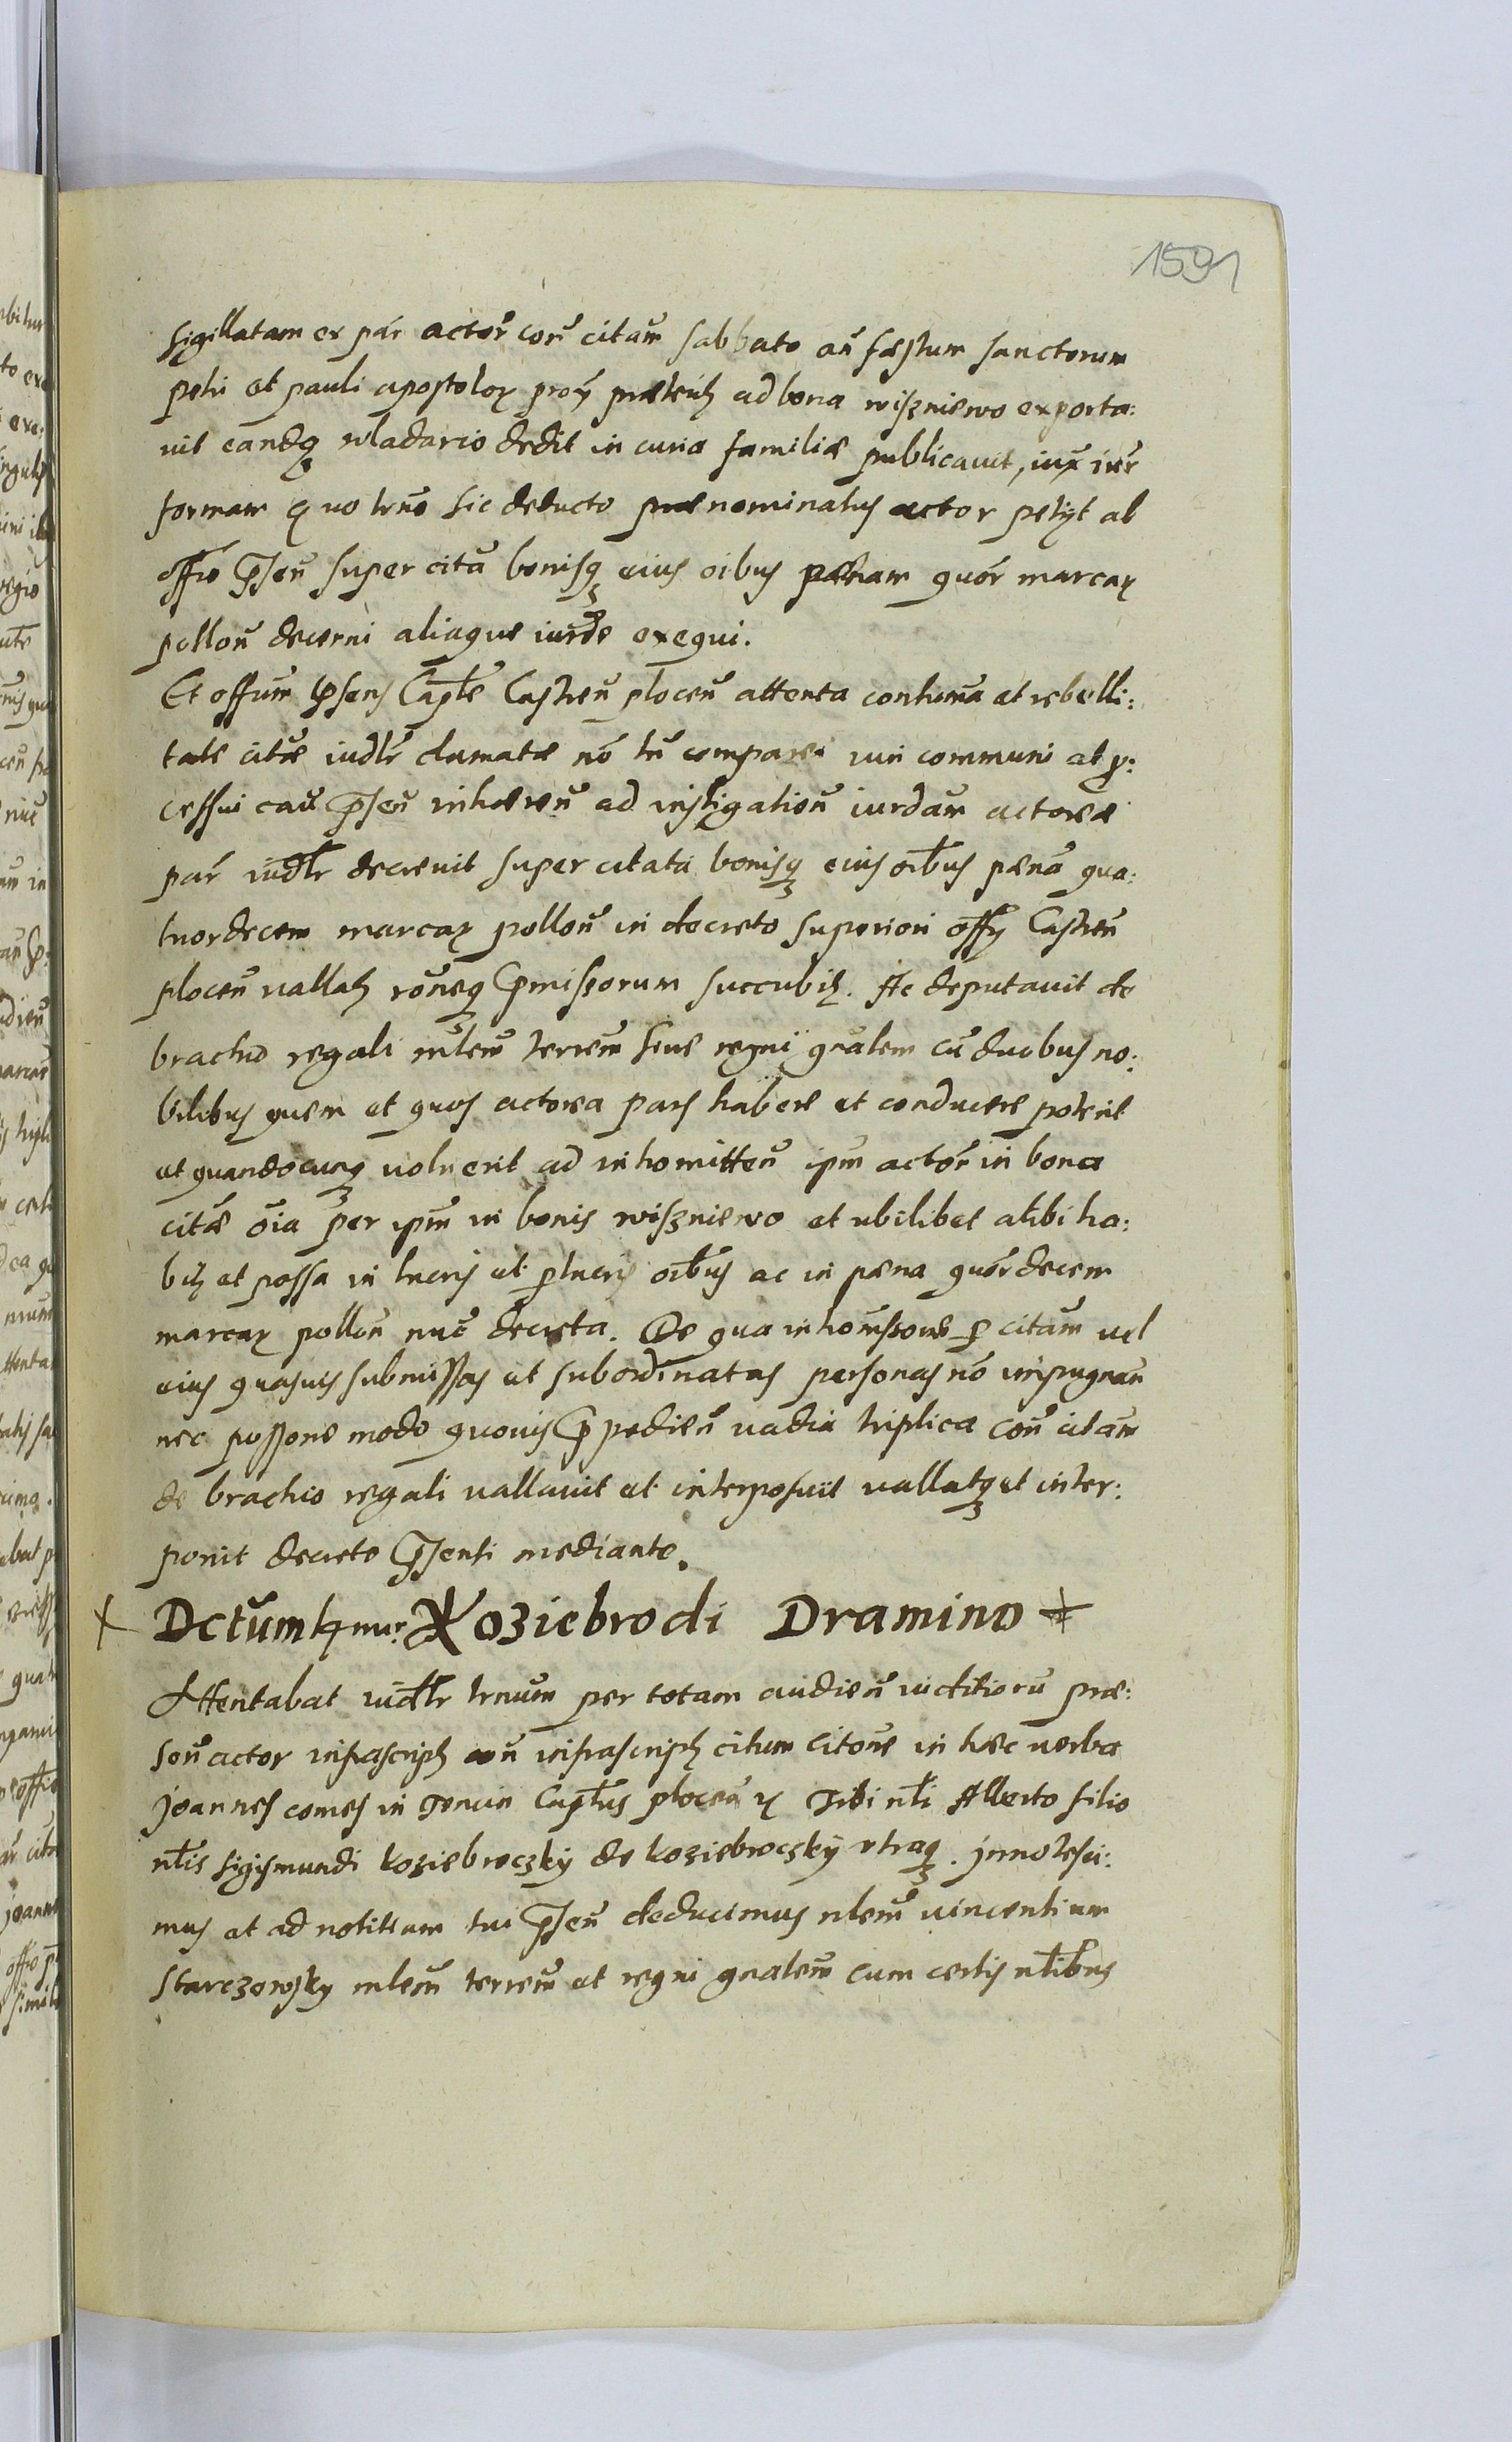 1591
sigillatam ex par actor con citam sabbato an fæstum sanctorum
petri et pauli apostolor prox præterit ad bona wiszniewo exporta:
uit eandq wladario dedit in curia familiæ publicauit, iux iur
formam quo trno sic deducto prænominatus actor petijt ab
offio psen super cita bonisq eius oibus pænam quor marcar
pollon decerni aliaque iurde exequi.
Et offum psens Caple Castren plocen attenta contuma et rebelli:
tate citæ iudlr clamatæ no tn compare iuri communi et p:
cessui cau psen inhæren ad instigation iurdam actoreæ
par iudlr decreuit super citata bonisq eius oibus pæna qua:
tuordecem marcar pollon in decreto superiori offy Castren
plocen vallat roneq pmissorum succubit. Ac deputauit de
brachio regali mlem terrem siue regni gnalem cu duobus no:
bilibus quem et quos actorea pars habere et conducere poterit
et quandocunq uoluerit ad intromitten ipm actor in bona
citæ oia per ipm in bonis wiszniewo et ubilibet alibi ha:
bit et possa in lucris et perlucris oibus ac in pæna quordecem
marcar pollon nuc decreta. De qua intromissione p citam uel
eius quasuis submissas et subordinatas personas no impugnan
nec possone modo quouis ppedien uadia triplica con citam
de brachio regali vallauit et interposuit vallatq et inter:
ponit decreto psenti mediante.
Dctum Koziebrodi Dramino
Attentabat iudlr trnum per totam audien iuditioru præ:
sen actor infrascript con infrascript citum Citone in hæc uerba
Joannes comes in Tencin Captus plocen Tibi nli Alberto filio
nlis Sigismundi koziebroczky de koziebroczky utraq. Innotesci:
mus et ad notitiam tui psen deducimus nlem vincentium
Starczewsky mlem terrem et regni gnalem cum certis nlibus